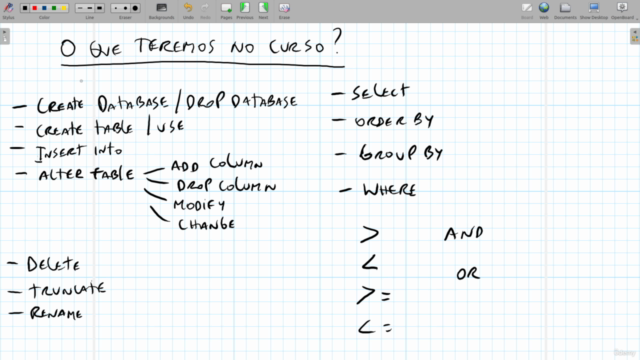 Stylus
Color
Line
Eraser
Backgrounds
Pages
Previous
Next
Erase
Board
Web
Documents
Show Desktop
OpenBoard
O QUE TEREMOS NO CURSO?
- CREATE DATABASE / DROP DATABASE
- CREATE TABLE / USE
- INSERT INTO
- ALTER TABLE - ADD COLUMN
- DROP COLUMN
- MODIFY
- CHANGE
- DELETE
- TRUNCATE
- RENAME
- SELECT
- ORDER BY
- GROUP BY
- WHERE
> AND
<
OR
>=
<=